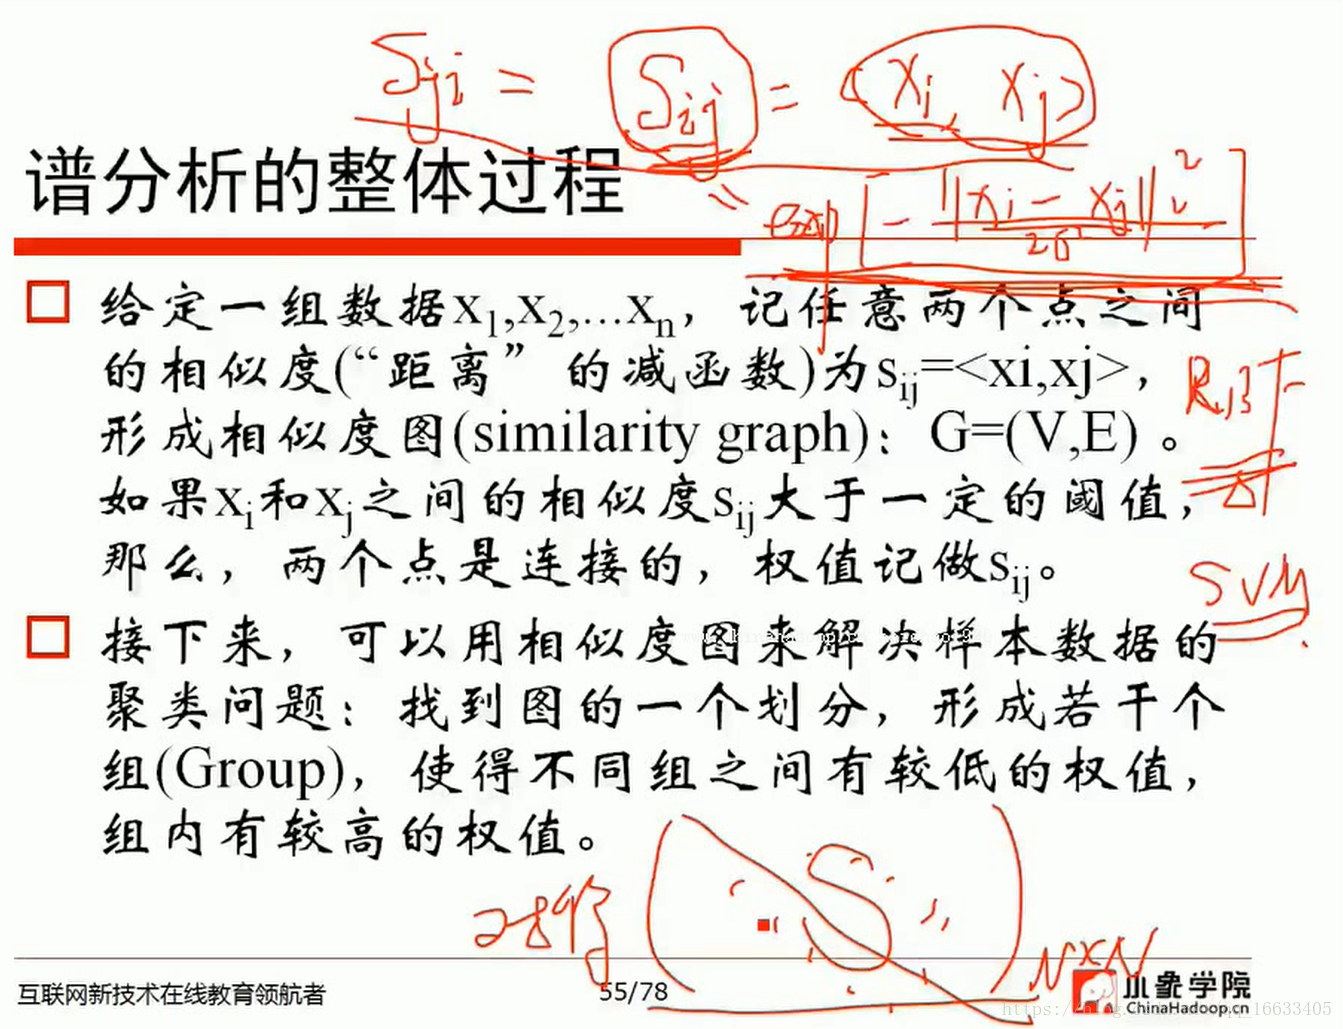 Sji = Sij = <xi, xj>
谱分析的整体过程
= exp[ - ||xi - xj||₂² / 2σ² ]
□ 给定一组数据x1,x2,...xn，记任意两个点之间
的相似度(“距离”的减函数)为sij=<xi,xj>，
RBF
形成相似度图(similarity graph)：G=(V,E) 。
如果xi和xj之间的相似度sij大于一定的阈值，
那么，两个点是连接的，权值记做sij。
SVM
□ 接下来，可以用相似度图来解决样本数据的
聚类问题：找到图的一个划分，形成若干个
组(Group)，使得不同组之间有较低的权值，
组内有较高的权值。
S
N×N
互联网新技术在线教育领航者
55/78
小象学院
ChinaHadoop.cn